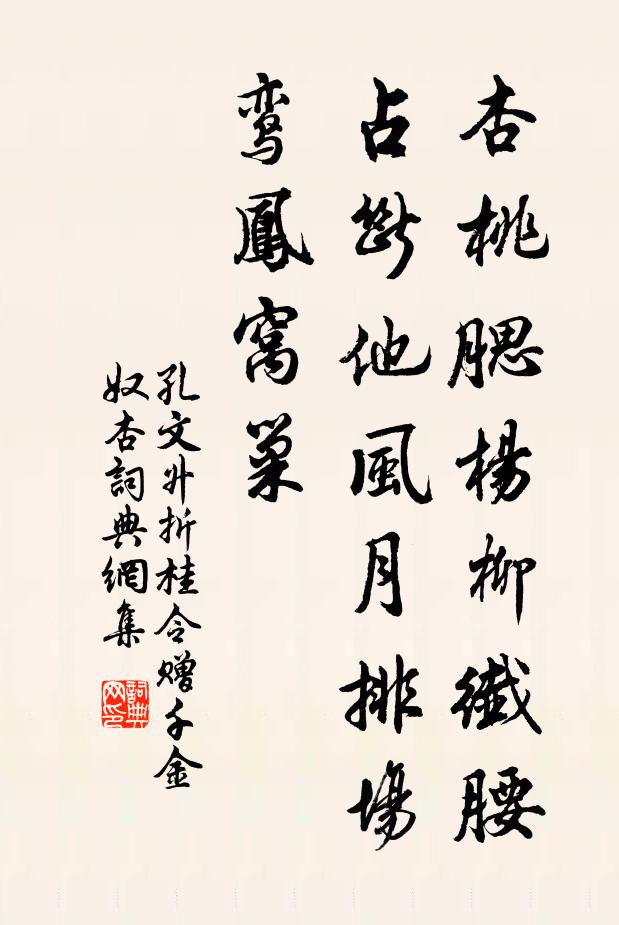 杏桃腮楊柳纖腰
占斷他風月排場
鸾鳳窩巢
孔文升折桂令赠千金
奴杏詞典網集
詞典网印